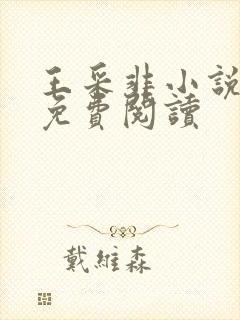 王采非小說
免費閱讀
戴維森